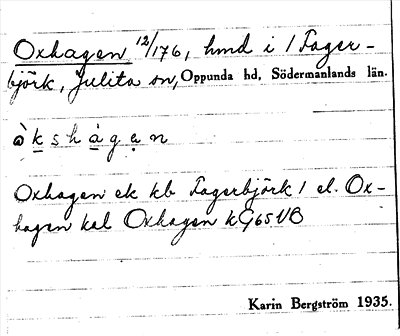 Oxhagen 12/176, hmd i 1 Fager-
björk, Julita sn, Oppunda hd, Södermanlands län.
òkshàgẹn
Oxhagen ek kb Fagerbjörk 1 el. Ox-
hagen kal Oxhagen k G65VB
Karin Bergström 1935.